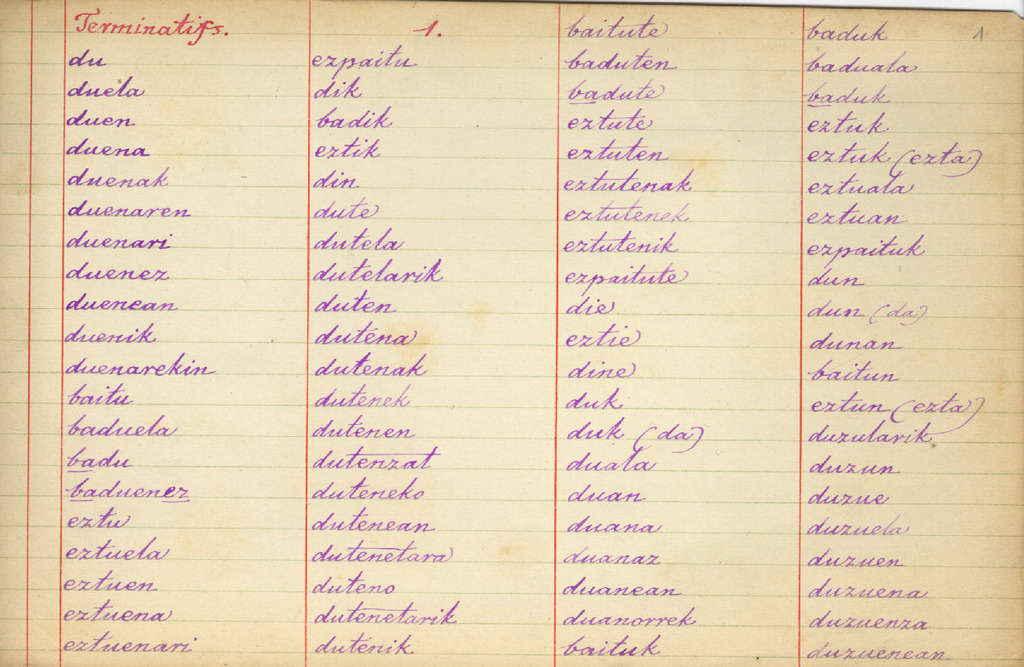 Terminatifs.
du
duela
duen
duena
duenak
duenaren
duenari
duenez
duenean
duenik
duenarekin
baitu
baduela
badu
baduenez
eztu
eztuela
eztuen
eztuena
eztuenari
1.
ezpaitu
dik
badik
eztik
din
dute
dutela
dutelarik
duten
dutena
dutenak
dutenek
dutenen
dutenzat
duteneko
dutenean
dutenetara
duteno
dutenetarik
dutenik
baitute
baduten
badute
eztute
eztuten
eztutenak
eztutenek
eztutenik
ezpaitute
die
eztie
dine
duk
duk (da)
duala
duan
duana
duanaz
duanean
duanorrek
baituk
baduk
baduala
baduk
eztuk
eztuk (ezta)
eztuala
eztuan
ezpaituk
dun
dun (da)
dunan
baitun
eztun (ezta)
duzularik
duzun
duzue
duzuela
duzuen
duzuena
duzuenza
duzuenean
1